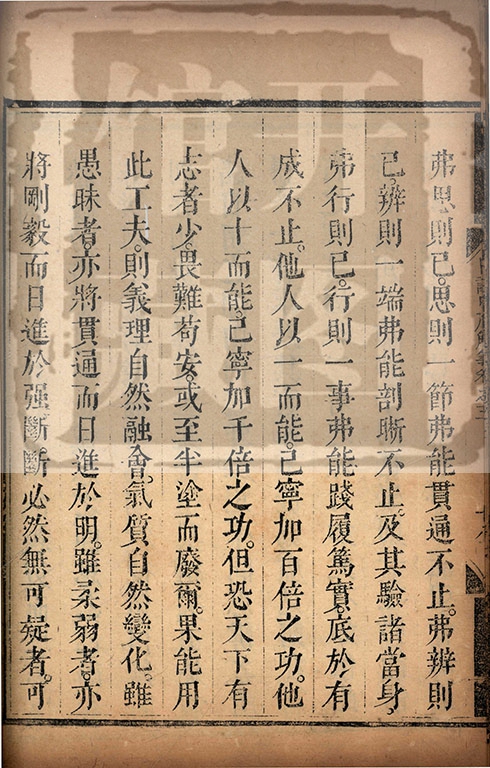 弗思則已。思則一節弗能貫通不止。弗辨則
已。辨則一端弗能剖晰不止。及其驗諸當身。
弗行則已。行則一事弗能踐履篤實。底於有
成不止。他人以一而能。己寧加百倍之功。他
人以十而能。己寧加千倍之功。但恐天下有
志者少。畏難苟安。或至半塗而廢爾。果能用
此工夫。則義理自然融會。氣質自然變化。雖
愚昧者。亦將貫通而日進於明。雖柔弱者。亦
將剛毅而日進於强。斷斷必然無可疑者。可